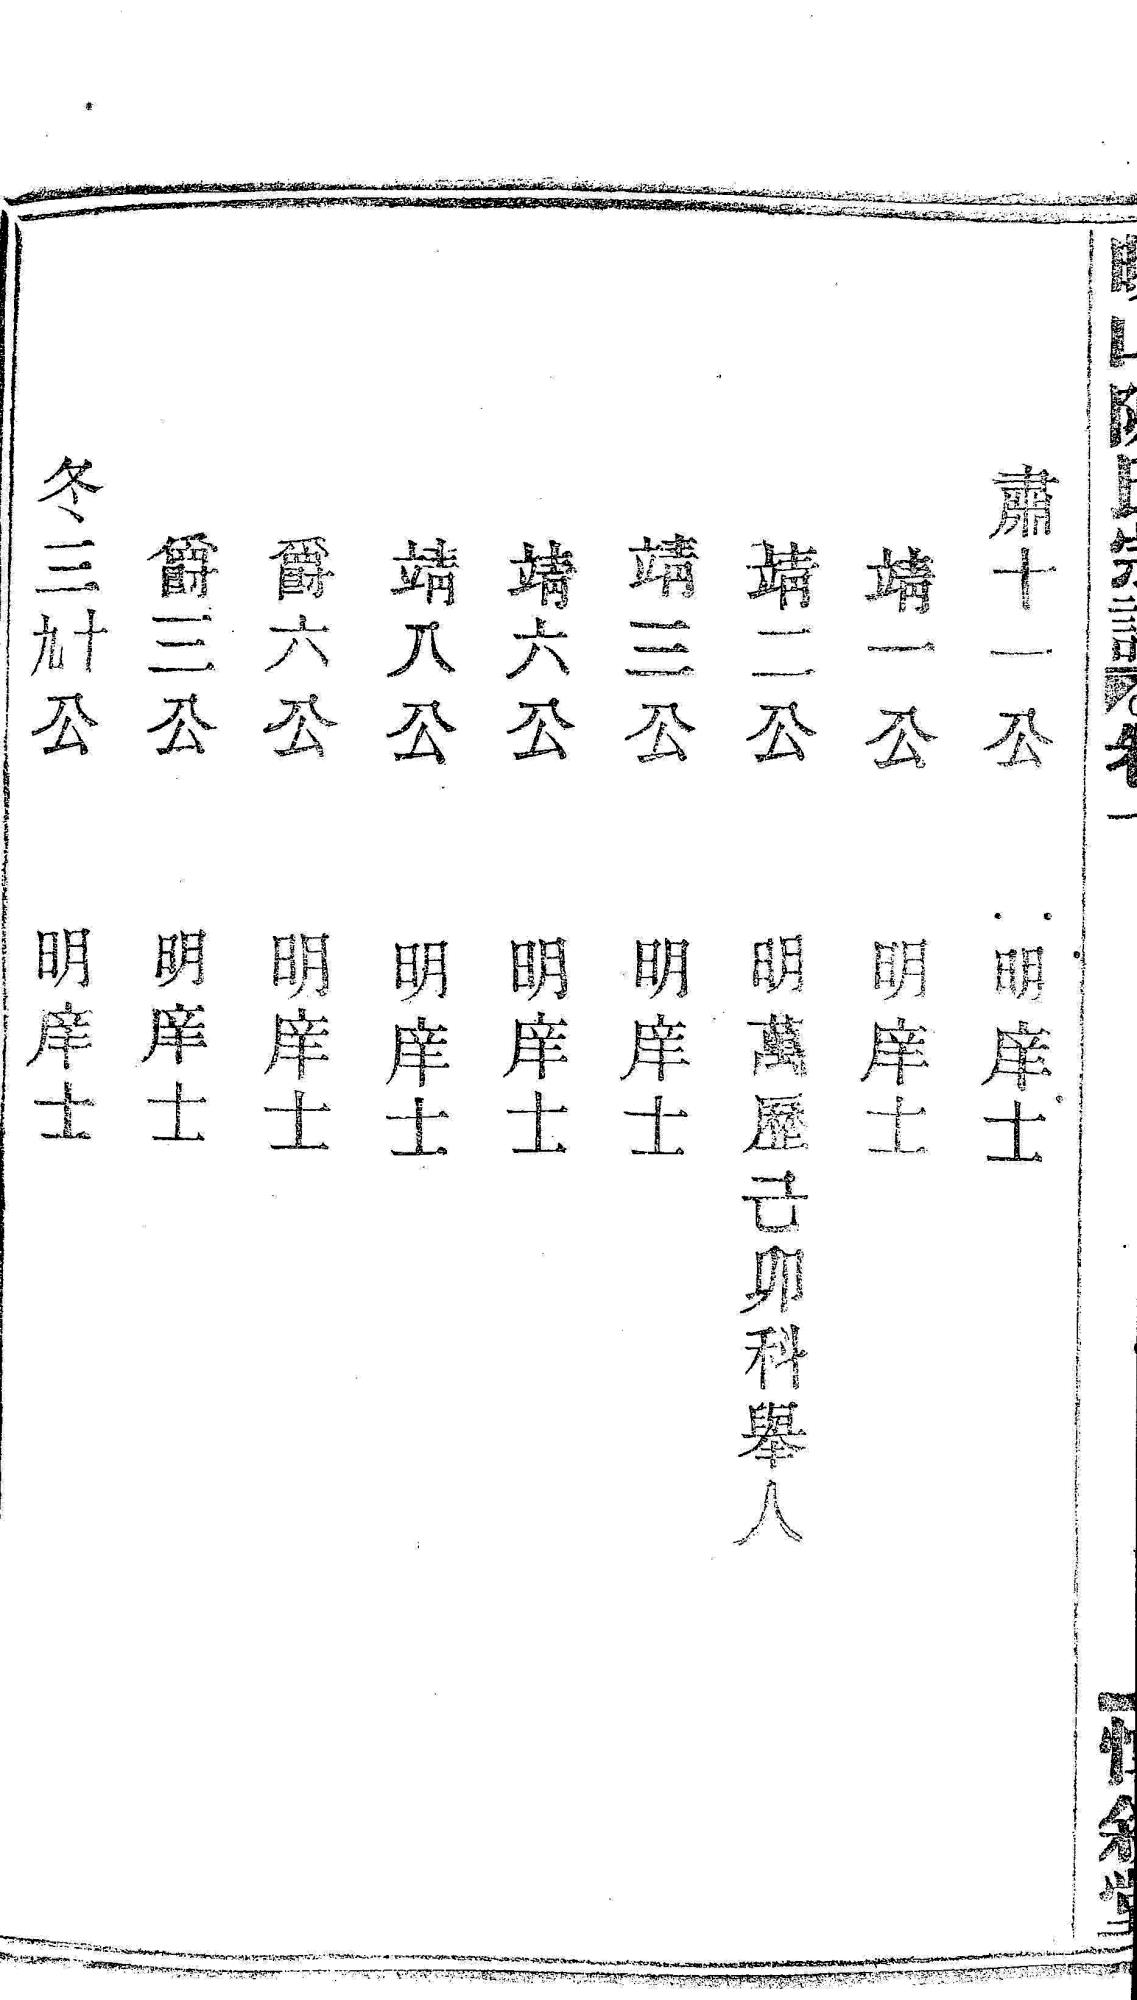 山陳氏宗譜 卷一
肅十一公 明庠士
靖一公 明庠士
靖二公 明萬歷己卯科舉人
靖三公 明庠士
靖六公 明庠士
靖八公 明庠士
爵六公 明庠士
爵三公 明庠士
冬三十九公 明庠士